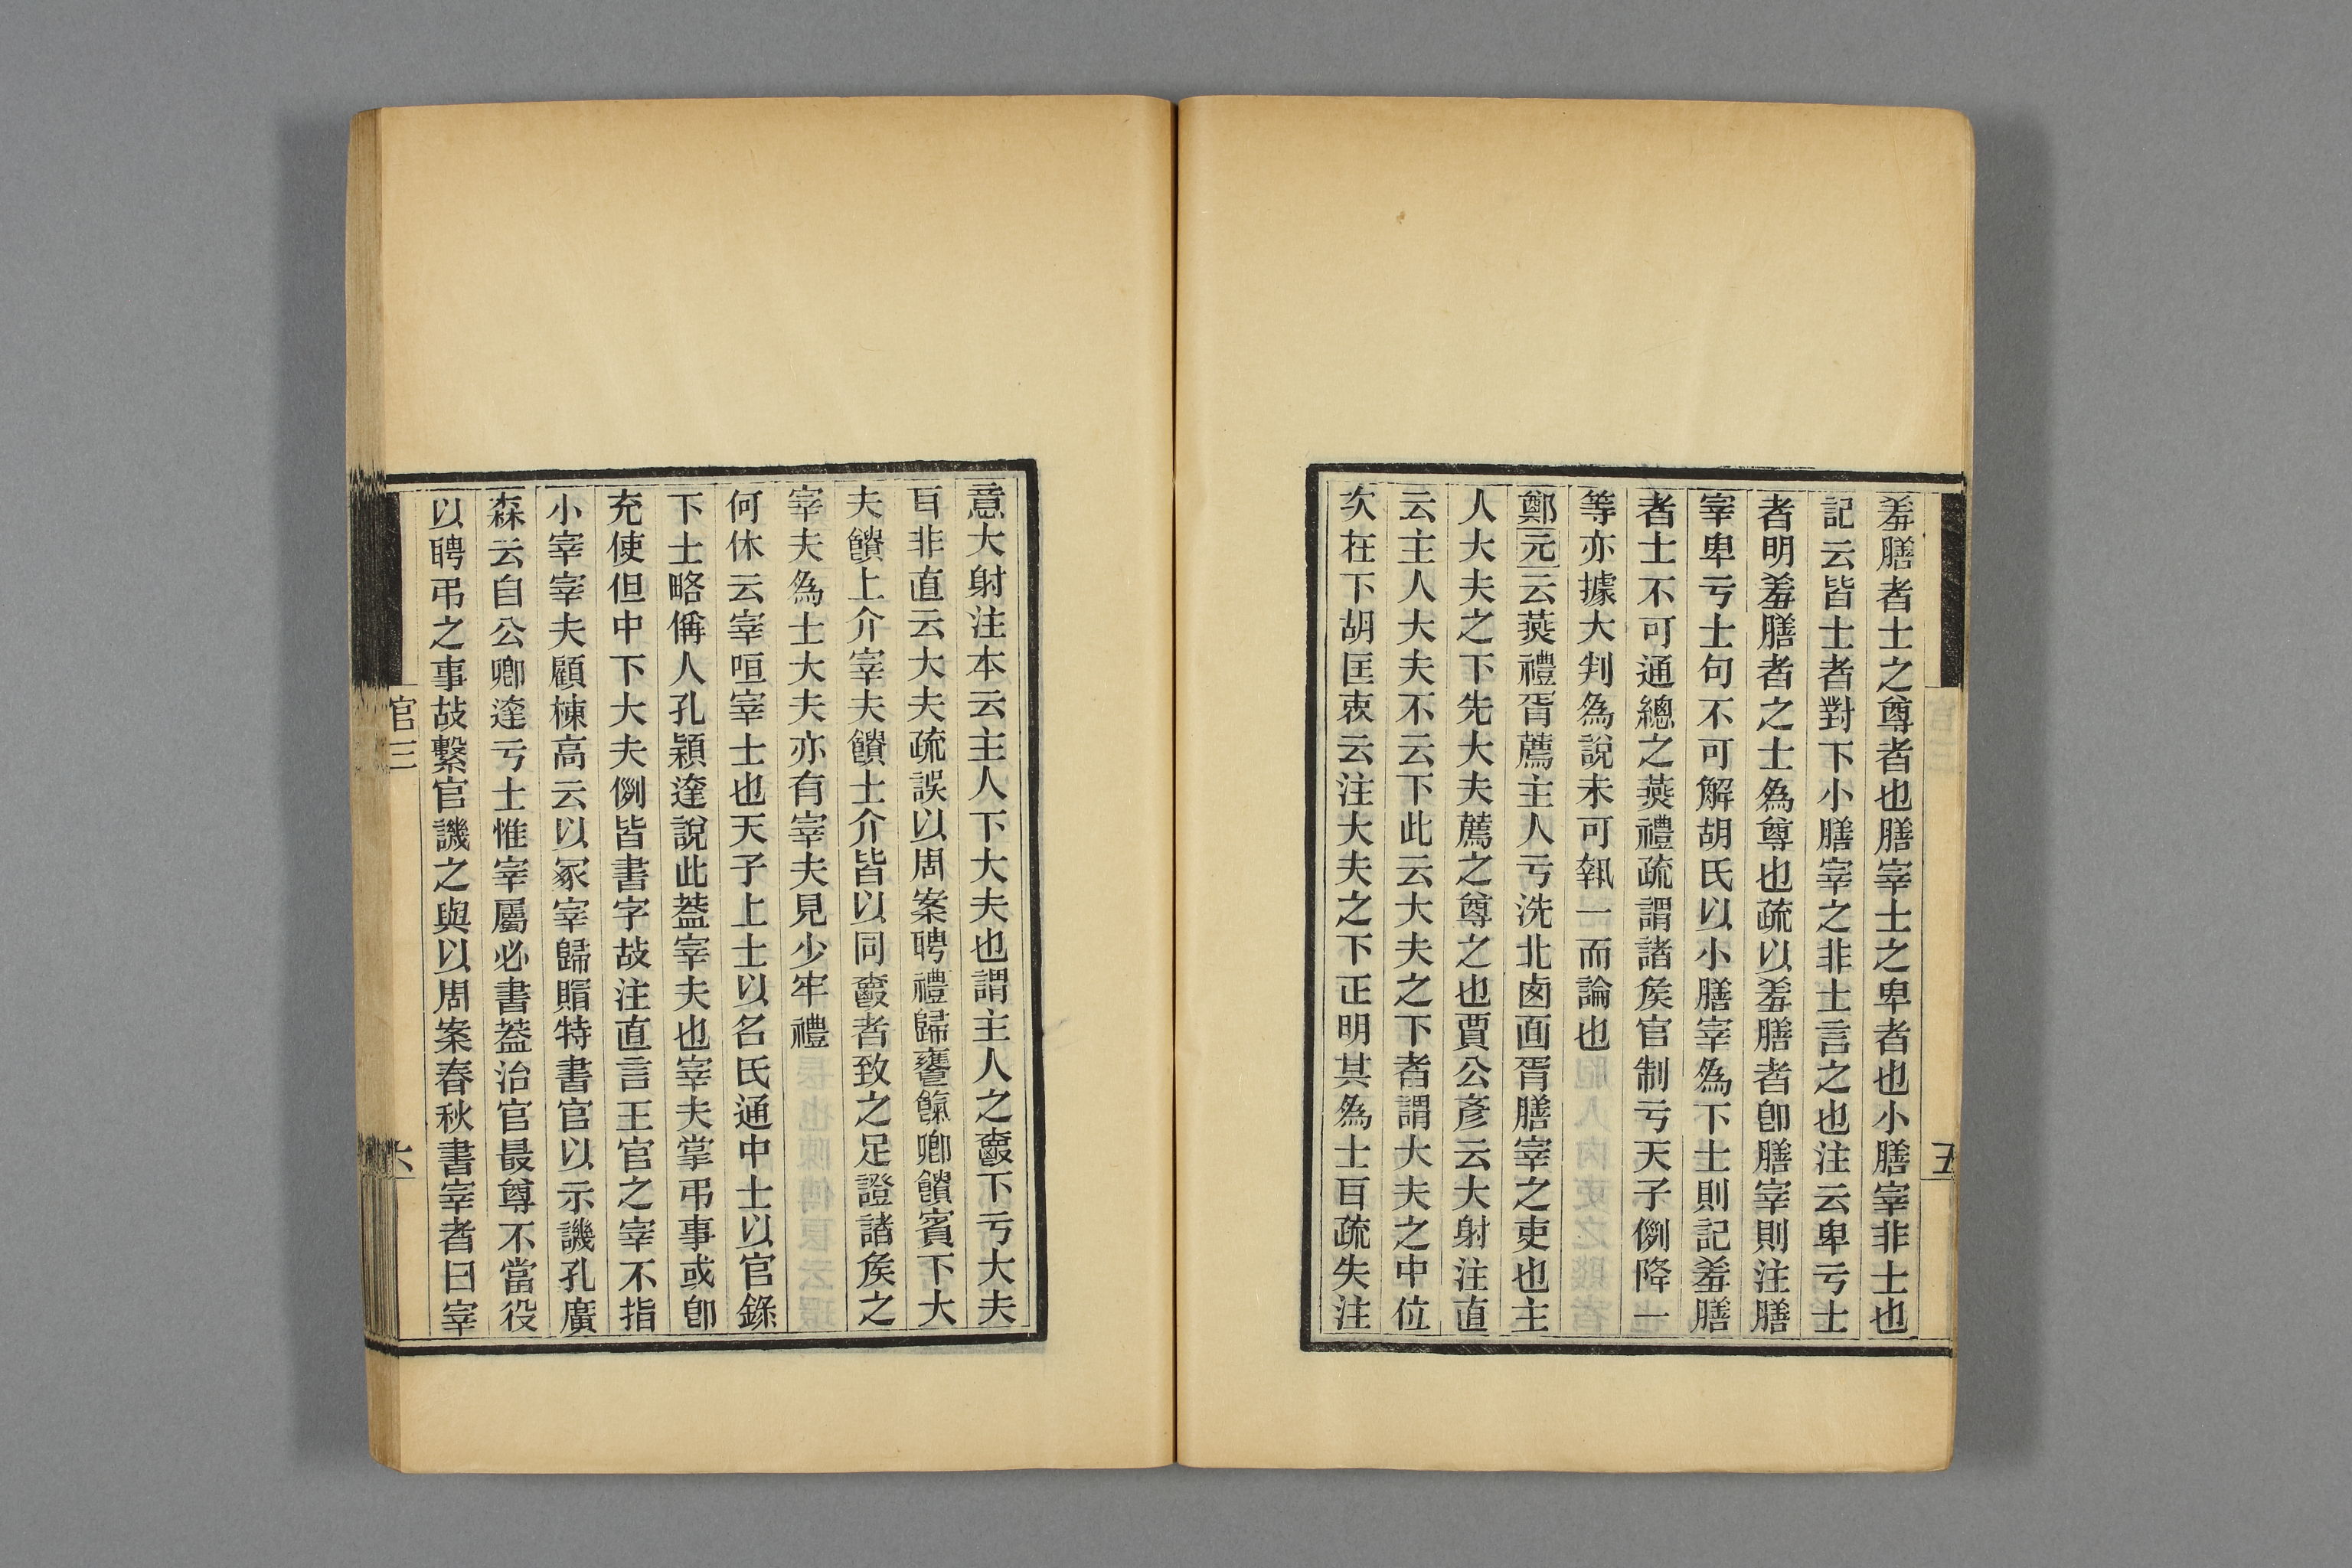 羞膳者士之尊者也膳宰士之卑者也小膳宰非士也
記云皆士者對下小膳宰之非士言之也注云卑亏士
者明羞膳者之士為尊也疏以羞膳者卽膳宰則注膳
宰卑亏士句不可解胡氏以小膳宰為下士則記羞膳
者士不可通總之燕禮疏謂諸矦官制亏天子例降一
等亦據大判為說未可執一而論也
鄭元云燕禮胥薦主人亏洗北卤面胥膳宰之吏也主
人大夫之下先大夫薦之尊之也賈公彥云大射注直
云主人大夫不云下此云大夫之下者謂大夫之中位
次在下胡匡衷云注大夫之下正明其為士耳疏失注
五
意大射注本云主人下大夫也謂主人之爵下亏大夫
耳非直云大夫疏誤以周案聘禮歸饔餼卿饋賓下大
夫饋上介宰夫饋士介皆以同爵者致之足證諸矦之
宰夫為士大夫亦有宰夫見少牢禮
何休云宰咺宰士也天子上士以名氏通中士以官錄
下士略偁人孔穎達說此葢宰夫也宰夫掌弔事或卽
充使但中下大夫例皆書字故注直言王官之宰不指
小宰宰夫顧棟高云以冢宰歸賵特書官以示譏孔廣
森云自公卿達亏士惟宰屬必書葢治官最尊不當役
以聘弔之事故繫官譏之與以周案春秋書宰者曰宰
官三
六